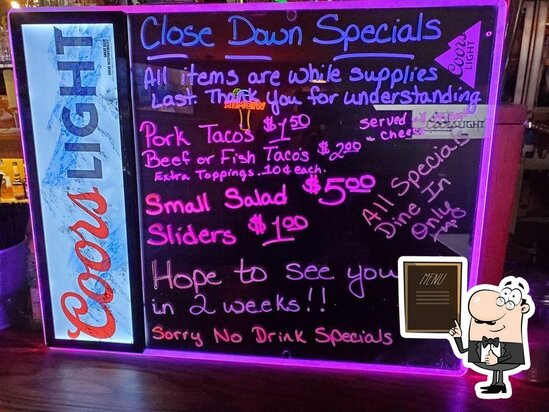 Coors LIGHT
Close Down Specials
All items are while supplies
Last. Thank you for understanding
Coors
LIGHT
Pork Tacos $1.50
served
cheese
Beef or Fish Taco's $2.00
Extra Toppings .10¢ each.
Small Salad $5.00
Sliders $1.00
All Specials
Dine In
Only
Hope to see you
in 2 weeks!!
Sorry No Drink Specials
MENU